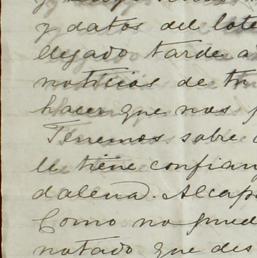 y datos del lote
llegado tarde a
noticias de tu
hacer que nos p
Tenemos sobre
le tiene confian
dalena. Alcap
Como no pued
notado que des